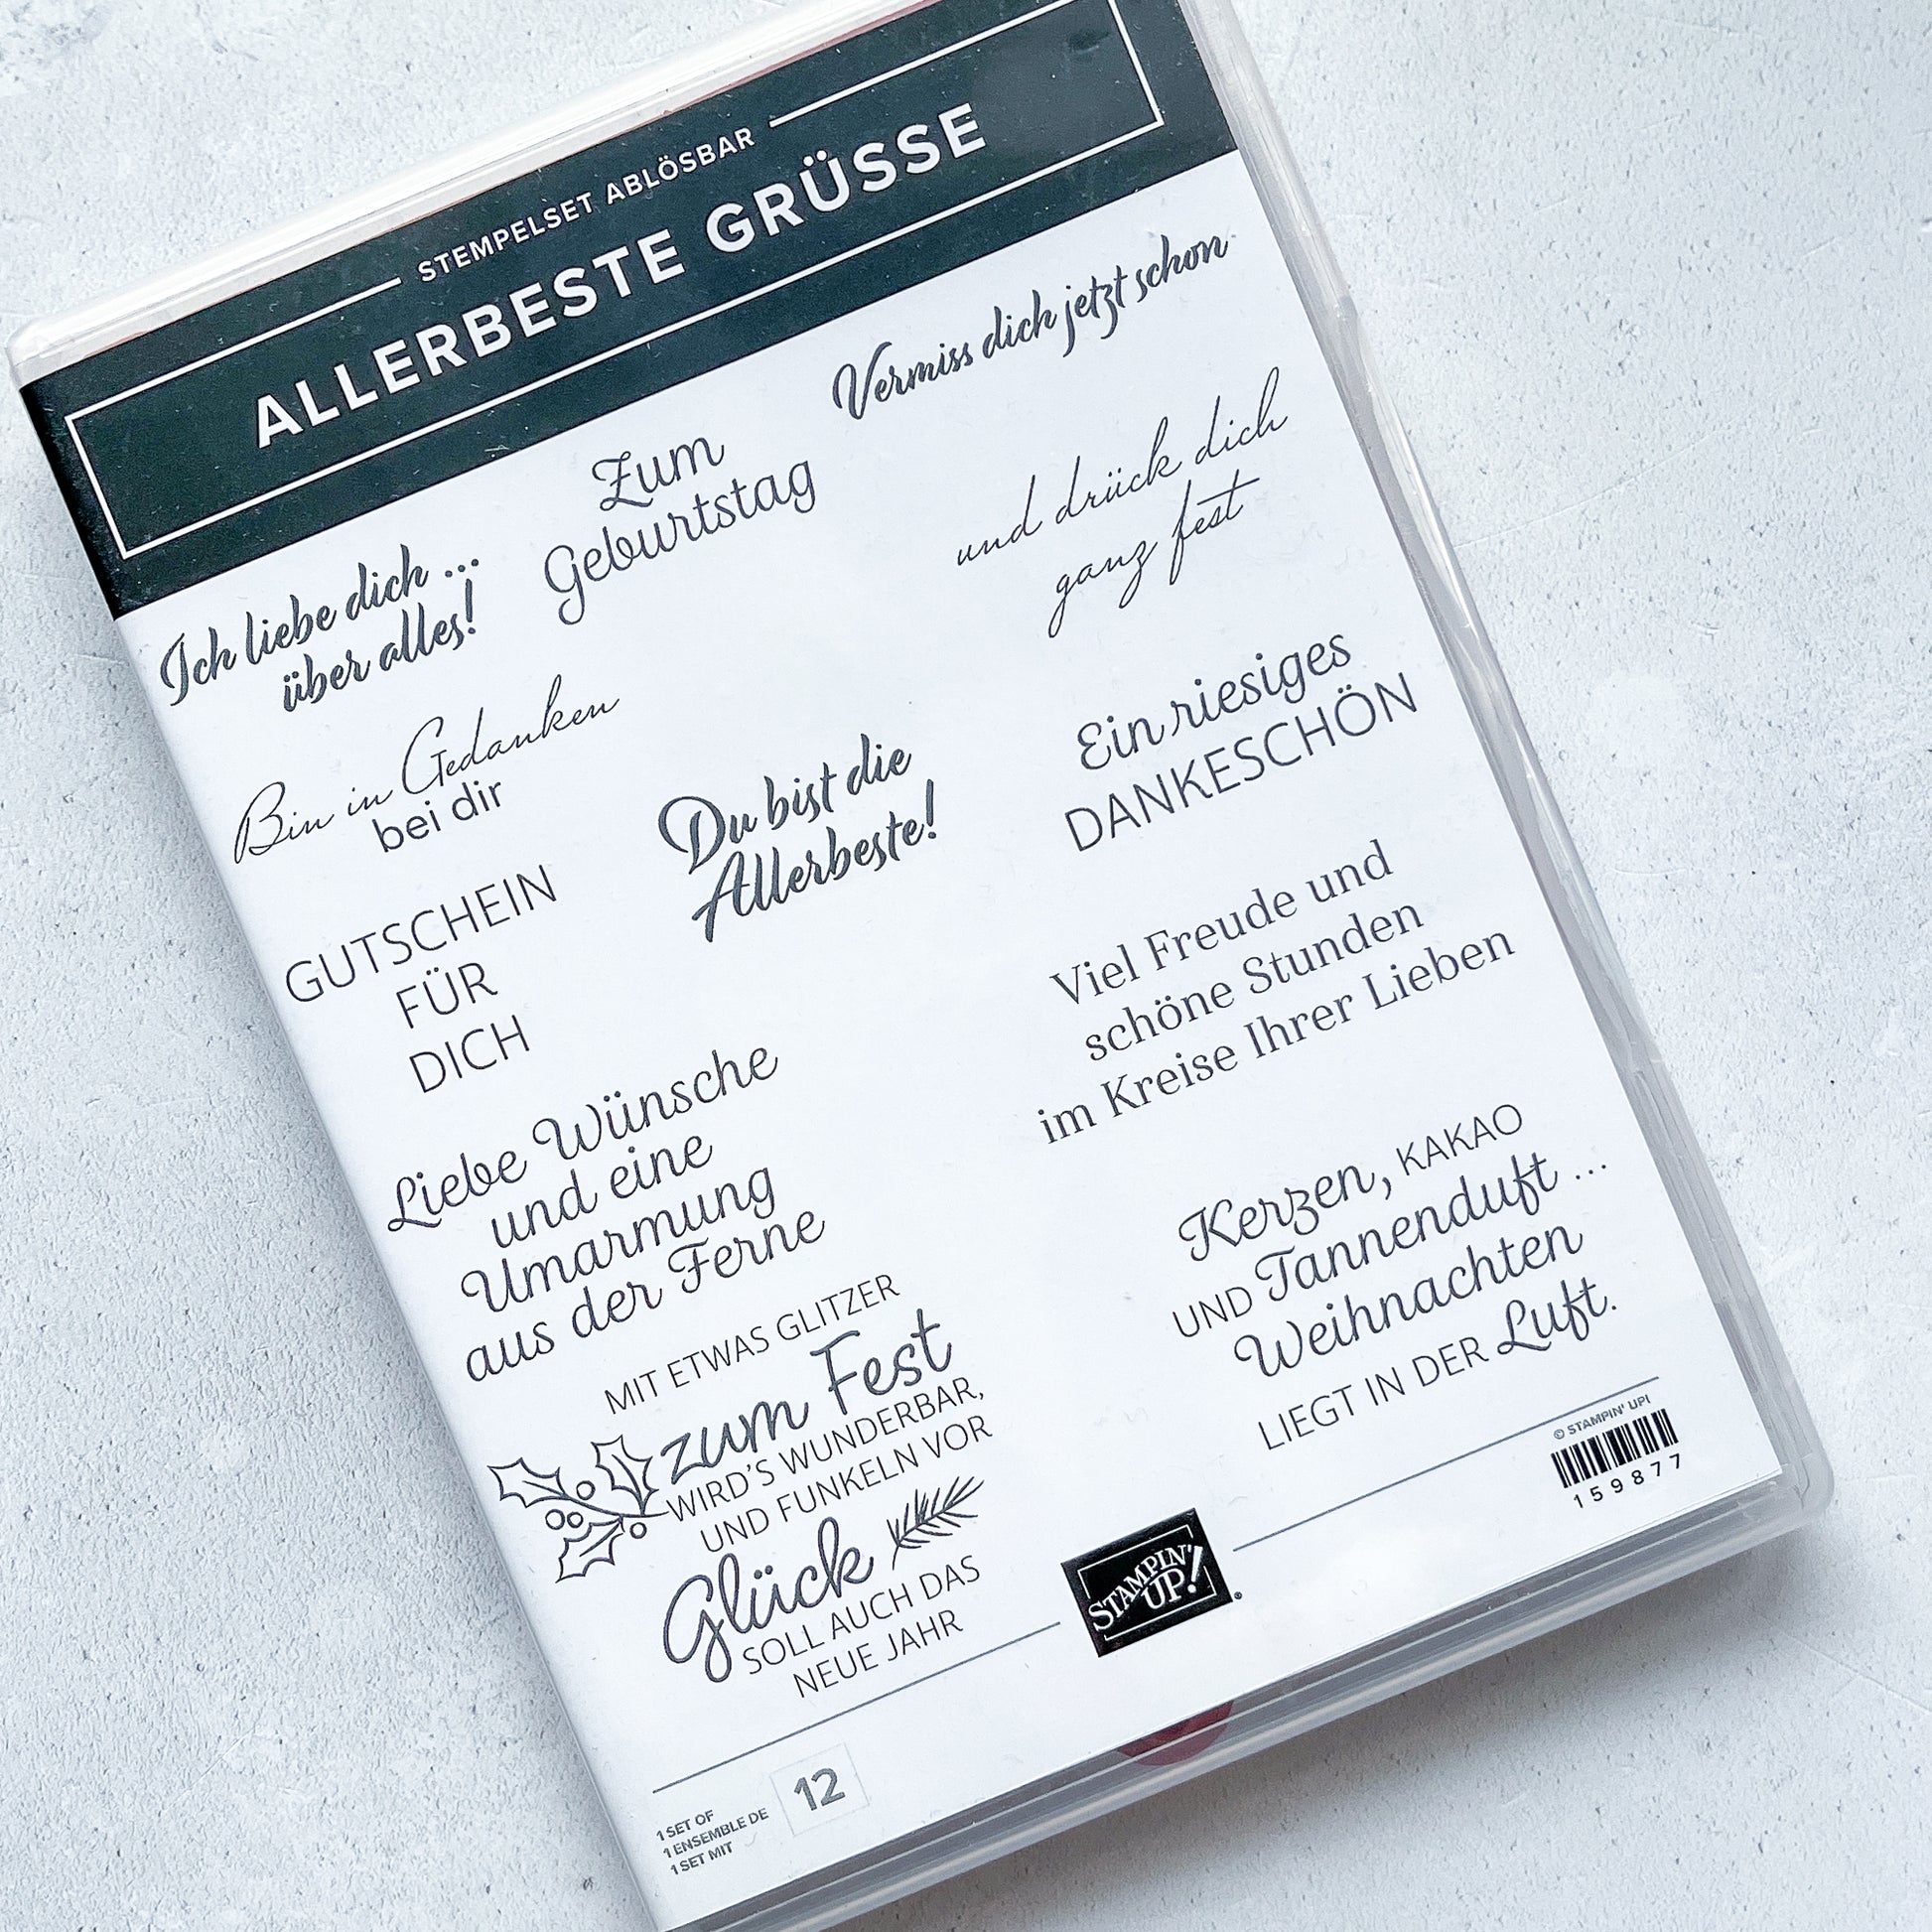 STEMPELSET ABLÖSBAR
ALLERBESTE GRÜSSE
Ich liebe dich ...
über alles!
Zum
Geburtstag
Vermiss dich jetzt schon
und drück dich
ganz fest
Bin in Gedanken
bei dir
Du bist die
Allerbeste!
Ein riesiges
DANKESCHÖN
GUTSCHEIN
FÜR
DICH
Viel Freude und
schöne Stunden
im Kreise Ihrer Lieben
Liebe Wünsche
und eine
Umarmung
aus der Ferne
Kerzen, KAKAO
UND Tannenduft ...
Weihnachten
LIEGT IN DER Luft.
MIT ETWAS GLITZER
zum Fest
WIRD'S WUNDERBAR,
UND FUNKELN VOR
Glück
SOLL AUCH DAS
NEUE JAHR
© STAMPIN' UP!
159877
STAMPIN'
UP!
1 SET OF
1 ENSEMBLE DE
1 SET MIT
12